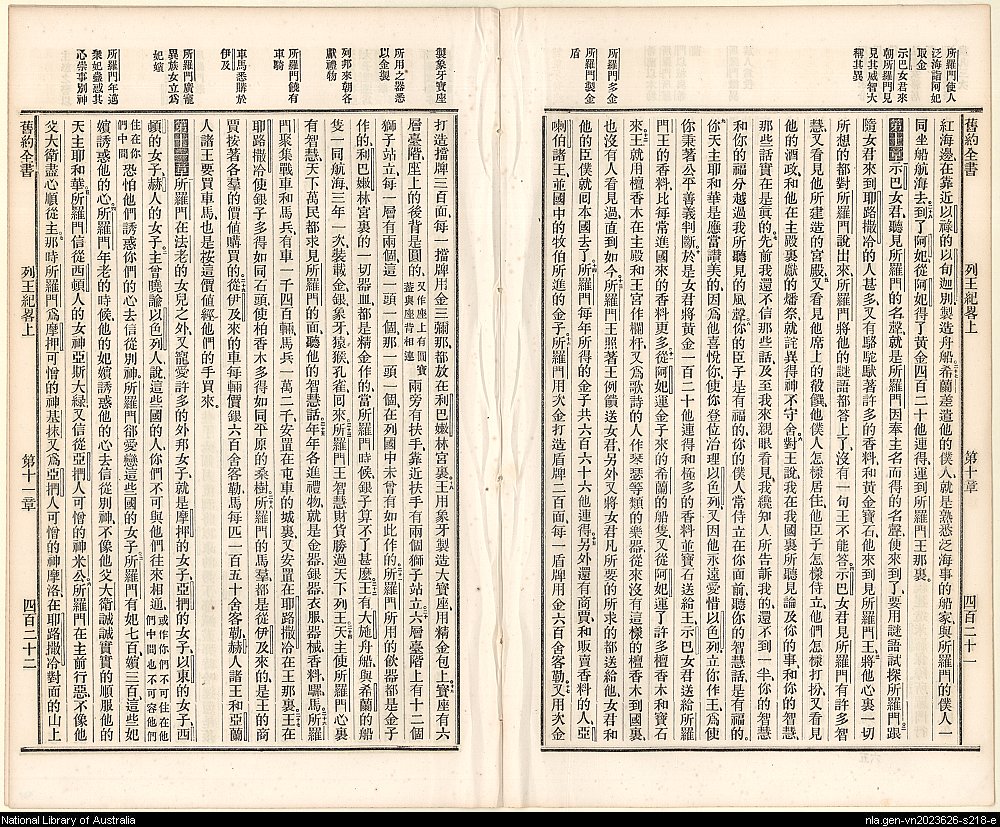 所羅門使人
泛海詣阿妃
取金
示巴女君來
朝所羅門見
見其威智大
稱其異
所羅門多金
所羅門製金
盾
舊約全書 列王紀畧上 第十章 四百二十一
紅海邊在靠近以祿的以旬迦別製造舟船希蘭差遣他的僕人就是熟悉泛海事的船家與所羅門的僕人一
同坐船航海去到了阿妃從阿妃得了黃金四百二十他連得運到所羅門王那裏
第十章示巴女君聽見所羅門的名聲就是所羅門因奉主名而得的名聲便來到了要用謎語試探所羅門跟
隨女君來到耶路撒冷的人甚多又有駱駝馱著許多的香料和黃金寶石他來到見所羅門王將他心裏一切
所想的都對所羅門說出來所羅門將他的謎語都答上了沒有一句王不能答示巴女君見所羅門有許多智
慧又看見他所建造的宮殿又看見他席上的殽饌他僕人怎樣居住他臣子怎樣侍立他們怎樣打扮又看見
他的酒政和他在主殿裏獻的燔祭就詫異得神不守舍對王說我在我國裏所聽見論及你的事和你的智慧
那些話實在是眞的先前我還不信那些話及至我來親眼看見我纔知人所告訴我的還不到一半你的智慧
和你的福分越過我所聽見的風聲你的臣子是有福的你的僕人常侍立在你面前聽你的智慧話是有福的
你天主耶和華是應當讚美的因爲他喜悅你使你登位治理以色列又因他永遠愛惜以色列立你作王爲使
你秉著公平善義判斷於是女君將黃金一百二十他連得和極多的香料並寶石送給王示巴女君送給所羅
門王的香料比每常進國來的香料更多從阿妃運金子來的希蘭的船隻又從阿妃運了許多檀香木和寶石
來王就用檀香木在主殿和王宮作欄杆又爲歌詩的人作琴瑟等類的樂器從來沒有這樣的檀香木到國裏
也沒有人看見過直到如今所羅門王照著王例餽送女君另外又將女君凡所要的所求的都送給他女君和
他的臣僕就回本國去了所羅門每年所得的金子共六百六十六他連得另外還有商賈和販賣香料的人亞
喇伯諸王並國中的牧伯所進的金子所羅門用次金打造盾牌二百面每一盾牌用金六百舍客勒又用次金
製象牙寶座
所用之器悉
以金製
列邦來朝各
獻禮物
所羅門饒有
車騎
車馬悉購於
伊及
所羅門廣寵
異族女立爲
妃嬪
所羅門年邁
衆妃蠱惑其
心崇事別神
打造擋牌三百面每一擋牌用金三彌那都放在利巴嫩林宮裏王用象牙製造大寶座用精金包上寶座有六
層臺階座上的後背是圓的又作座上有圓寶蓋與座背相連兩旁有扶手靠近扶手有兩個獅子站立六層臺階上有十二個
獅子站立每一層有兩個這一頭一個那一頭一個在列國中未曾有如此作的所羅門所用的飲器都是金子
作的利巴嫩林宮裏的一切器皿都是精金作的當所羅門時候銀子算不了甚麽王有大施舟船與希蘭的船
隻一同航海三年一次裝載金銀象牙猿猴孔雀回來所羅門王智慧財貨勝過天下列王天主使所羅門心裏
有智慧天下萬民都求見所羅門的面聽他的智慧話年年各進禮物就是金器銀器衣服器械香料騾馬所羅
門聚集戰車和馬兵有車一千四百輛馬兵一萬二千安置在屯車的城裏又安置在耶路撒冷在王那裏王在
耶路撒冷使銀子多得如同石頭使柏香木多得如同平原的桑樹所羅門的馬羣都是從伊及來的是王的商
賈按著各羣的價值購買的從伊及來的車每輛價銀六百舍客勒馬每匹一百五十舍客勒赫人諸王和亞蘭
人諸王要買車馬也是按這價值經他們的手買來
第十一章所羅門在法老的女兒之外又寵愛許多的外邦女子就是摩押的女子亞捫的女子以東的女子西
頓的女子赫人的女子主曾曉諭以色列人說這些國的人你們不可與他們往來相通或作你們不可住在他們中間也不可容他們
住在你們中間恐怕他們誘惑你們的心去信從別神所羅門卻愛戀這些國的女子所羅門有妃七百嬪三百這些妃
嬪誘惑他的心所羅門年老的時候他的妃嬪誘惑他的心去信從別神不像他父大衛誠誠實實的順服他的
天主耶和華所羅門信從西頓人的女神亞斯大綠又信從亞捫人可憎的神米公所羅門在主前行惡不像他
父大衛盡心順從主那時所羅門爲摩押可憎的神基抹又爲亞捫人可憎的神摩洛在耶路撒冷對面的山上
舊約全書 列王紀畧上 第十一章 四百二十二
National Library of Australia
nla.gen-vn2023626-s218-e